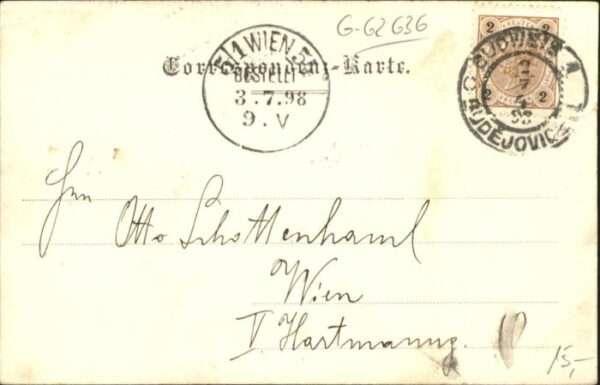 G-62636
Correspondenz-Karte.
5/1 WIEN 5/1
BESTELLT
3.7.98
9.V
2 2
2 2
BUDWEIS
BUDĚJOVICE
2
7
98
Herrn
Otto Schottenhaml
Wien
V Hartmanng. 10
15,-